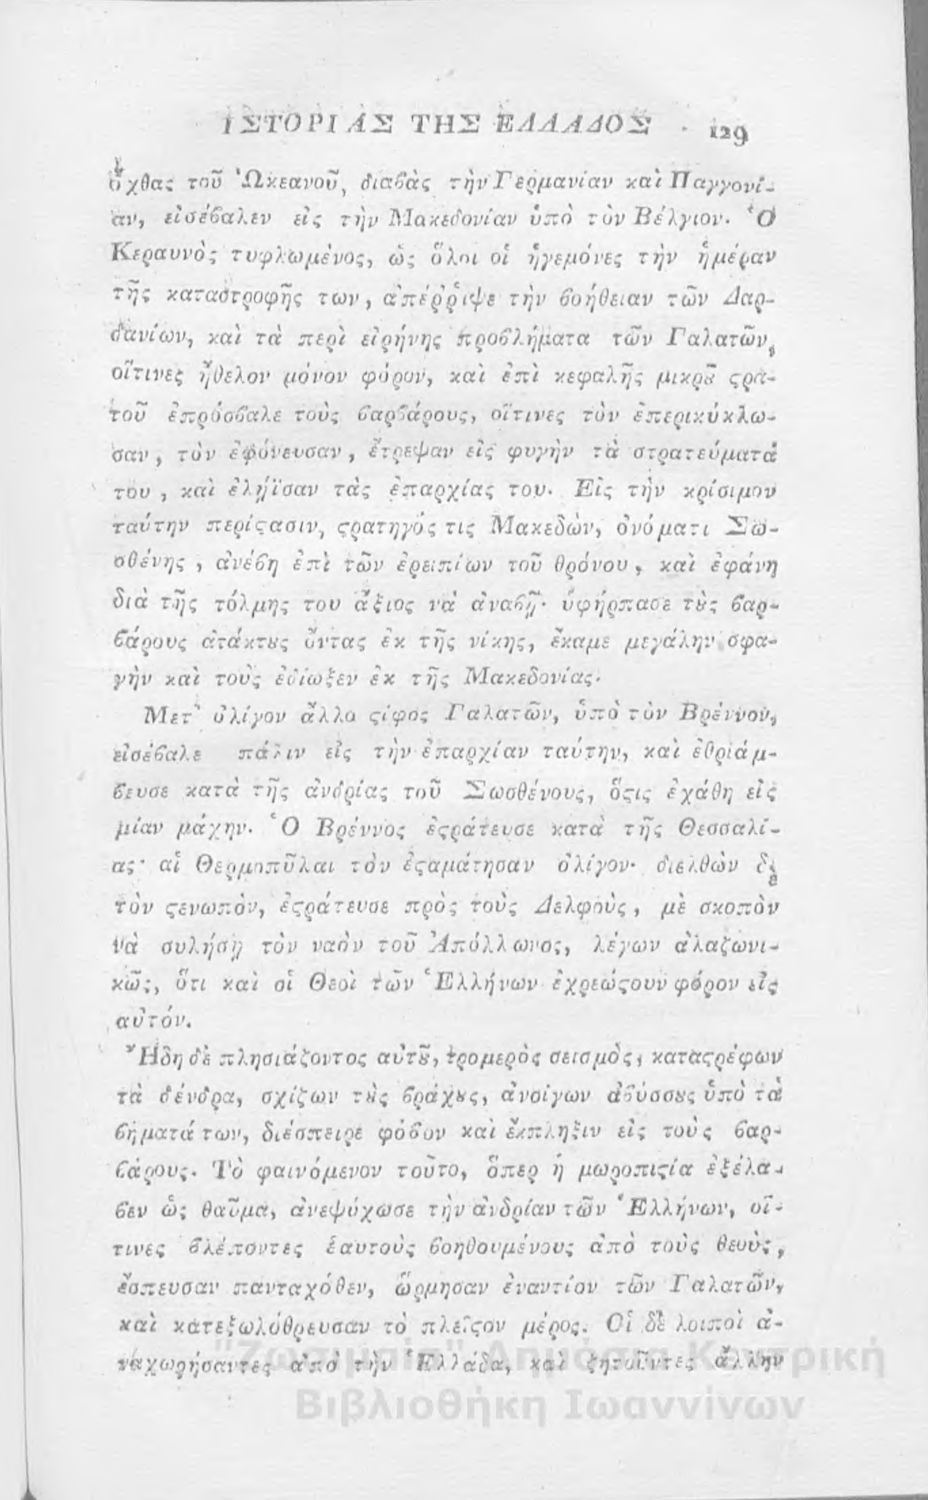 ΙΣΤΟΡΙΑΣ ΤΗΣ ΕΛΛΑΔΟΣ 129
ὄχθας τοῦ Ὠκεανοῦ, διαβὰς τὴν Γερμανίαν καὶ Παγγονί-
αν, εἰσέβαλεν εἰς τὴν Μακεδονίαν ὑπὸ τὸν Βέλγιον. Ὁ
Κεραυνὸς τυφλωμένος, ὡς ὅλοι οἱ ἡγεμόνες τὴν ἡμέραν
τῆς καταστροφῆς των, ἀπέῤῥιψε τὴν βοήθειαν τῶν Δαρ-
δανίων, καὶ τὰ περὶ εἰρήνης προβλήματα τῶν Γαλατῶν,
οἵτινες ἤθελον μόνον φόρον, καὶ ἐπὶ κεφαλῆς μικρȣ͂ ϛρα-
τοῦ ἐπρόσβαλε τοὺς βαρβάρους, οἵτινες τὸν ἐπερικύκλω-
σαν, τὸν ἐφόνευσαν, ἔτρεψαν εἰς φυγὴν τὰ στρατεύματά
του, καὶ ἐλῄϊσαν τὰς ἐπαρχίας του. Εἰς τὴν κρίσιμον
ταύτην περίϛασιν, ϛρατηγός τις Μακεδὼν, ὀνόματι Σω-
σθένης, ἀνέβη ἐπὶ τῶν ἐρειπίων τοῦ θρόνου, καὶ ἐφάνη
διὰ τῆς τόλμης του ἄξιος νὰ ἀναβῇ· ὑφήρπασε τȣ̀ς βαρ-
βάρους ἀτάκτȣς ὄντας ἐκ τῆς νίκης, ἔκαμε μεγάλην σφα-
γὴν καὶ τοὺς ἐδίωξεν ἐκ τῆς Μακεδονίας.
Μετ' ὀλίγον ἄλλο ϛίφος Γαλατῶν, ὑπὸ τὸν Βρέννον,
εἰσέβαλε πάλιν εἰς τὴν ἐπαρχίαν ταύτην, καὶ ἐθριάμ-
βευσε κατὰ τῆς ἀνδρίας τοῦ Σωσθένους, ὅϛις ἐχάθη εἰς
μίαν μάχην. Ὁ Βρέννος ἐϛράτευσε κατὰ τῆς Θεσσαλί-
ας· αἱ Θερμοπῦλαι τὸν ἐϛαμάτησαν ὀλίγον· διελθὼν δὲ
τὸν ϛενωπὸν, ἐϛράτευσε πρὸς τοὺς Δελφοὺς, μὲ σκοπὸν
νὰ συλήσῃ τὸν ναὸν τοῦ Ἀπόλλωνος, λέγων ἀλαζωνι-
κῶς, ὅτι καὶ οἱ Θεοὶ τῶν Ἑλλήνων ἐχρεώϛουν φόρον εἰς
αὐτόν.
Ἤδη δὲ πλησιάζοντος αὐτȣ͂, τρομερὸς σεισμὸς, καταϛρέφων
τὰ δένδρα, σχίζων τȣ̀ς βράχȣς, ἀνοίγων ἀβύσσȣς ὑπὸ τὰ
βήματά των, διέσπειρε φόβον καὶ ἔκπληξιν εἰς τοὺς βαρ-
βάρους. Τὸ φαινόμενον τοῦτο, ὅπερ ἡ μωροπιϛία ἐξέλα-
βεν ὡς θαῦμα, ἀνεψύχωσε τὴν ἀνδρίαν τῶν Ἑλλήνων, οἵ-
τινες βλέποντες ἑαυτοὺς βοηθουμένους ἀπὸ τοὺς θεοὺς,
ἔσπευσαν πανταχόθεν, ὥρμησαν ἐναντίον τῶν Γαλατῶν,
καὶ κατεξωλόθρευσαν τὸ πλεῖϛον μέρος. Οἱ δὲ λοιποὶ ἀ-
ναχωρήσαντες ἀπὸ τὴν Ἑλλάδα, καὶ ζητοῦντες ἄλλην
"Ζωσιμαία" Δημόσια Κεντρική
Βιβλιοθήκη Ιωαννίνων